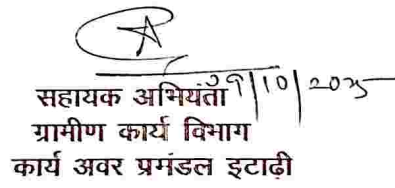 सहायक अभियंता 29/10/2025
ग्रामीण कार्य विभाग
कार्य अवर प्रमंडल इटाढ़ी